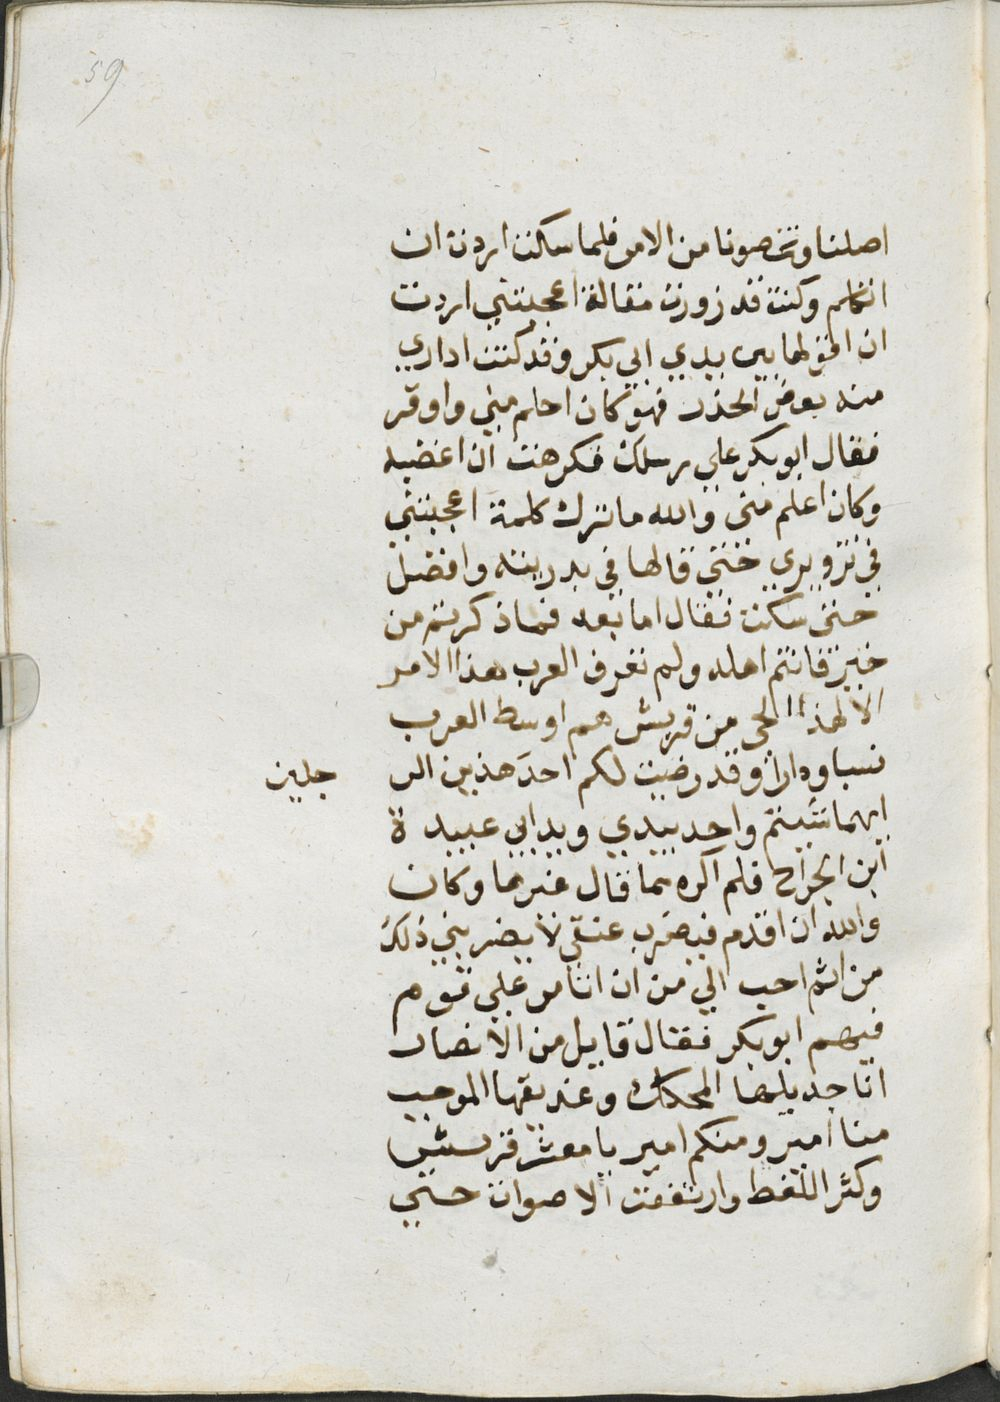 59
اصلنا وتخصونا من الامر فلما سكت اردت ان
اتكلم وكنت قد زورت مقالة اعجبتني اردت
ان اقولها بين يدي ابي بكر وقد كنت اداري
منه بعض الحذر فهو كان احلم مني واوقر
فقال ابو بكر علي رسلك فكرهت ان اغضبه
وكان اعلم مني والله ما ترك كلمة اعجبتني
في تزويري حتي قالها في بديهته وافضل
حتي سكت فقال اما بعد فما ذكرتم من
خير فانتم اهله ولم تعرف العرب هذا الامر
الا لهذا الحي من قريش هم اوسط العرب
نسبا ودارا وقد رضيت لكم احد هذين الر جلين
ايهما شيتم واخد بيدي ويد ابي عبيدة
ابن الجراح فلم اكره مما قال غيرها وكان
والله ان اقدم فيضرب عنقي لا يضربني ذلك
من اثم احب الي من ان اتامر علي قوم
فيهم ابو بكر فقال قايل من الانصار
انا جديلها المحكك وعذيقها الموجب
منا امير ومنكم امير يا معشر قريش
وكثر اللغط وارتفعت الاصوات حتي